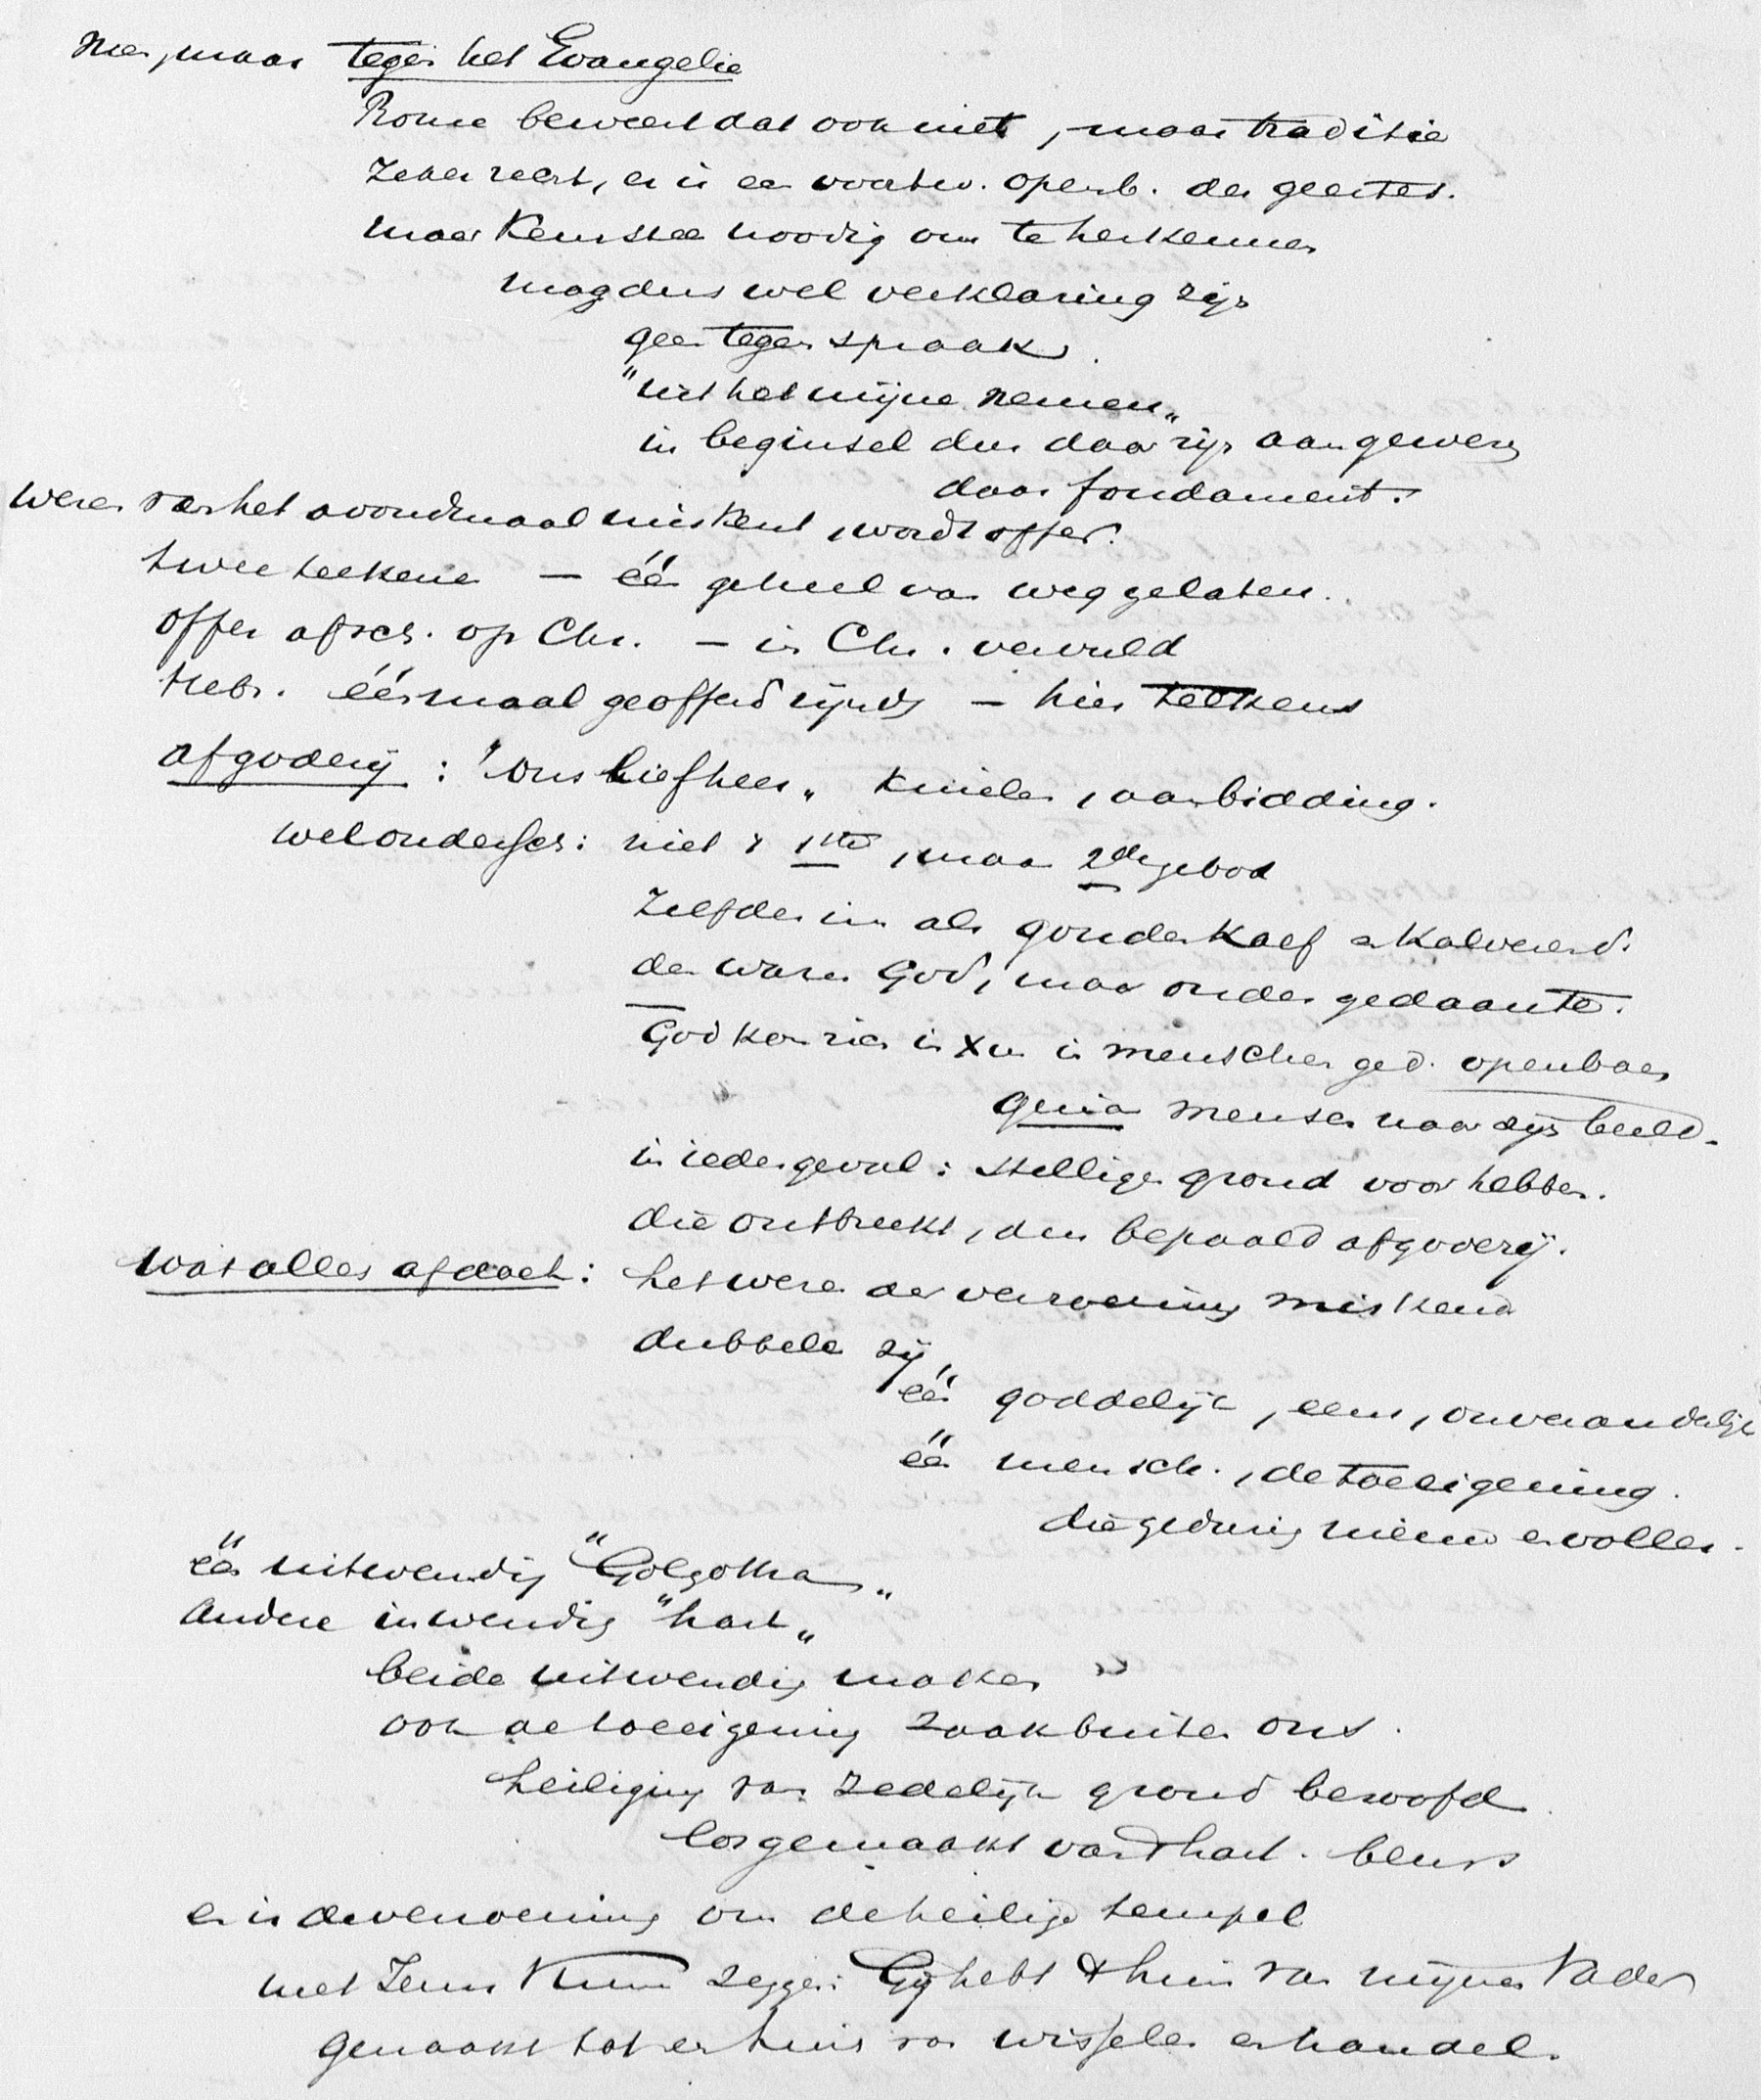 Neen, maar tegen het Evangelie
Rome beweert dat ook niet, maar traditie
Zeker recht, er is een voortw. openb. des geestes.
maar Kenmerk noodig om te herkennen
mag dus wel verklaring zijn
geen tegenspraak.
"uit het mijne nemen„
in beginsel dus daar zijn aangewezen
daar fondament.
Wezen van het avondmaal miskent, wordt offer.
twee teekenen — één geheel van weggelaten.
offer afsch. op Chr. — in Chr. vervuld
Hebr. éénmaal geofferd zijnde — hier telkens
afgoderij : "ons lief heer„ knielen, aanbidding.
wel ondersch: niet 't 1ste, maar 2de gebod
Zelfde zin als gouden kalf en kalverend.
den waren God, maar onder gedaante.
God kon zich in Xus in menschen ged. openbaren
quia mensch naar zijn beeld.
in ieder geval : stellige grond voor hebben.
die ontbreekt, dus bepaald afgoderij.
Wat alles afdoet : het wezen der verzoening miskend
dubbele zij
één goddelijk, eens, onveranderlijk
één mensch., de toeeigening.
die gedurig nieuw en voller.
één uitwendig "Golgotha„
andere inwendig "hart„
beide uitwendig maken
ook de toeeigening zaak buiten ons.
heiliging van zedelijk grond beroofd
losgemaakt van 't hart.
en in de verzoening om de heilige tempel
met Jezus zeggen: Gij hebt 't huis van mijnen Vader
gemaakt tot een huis van wisselen en handel.